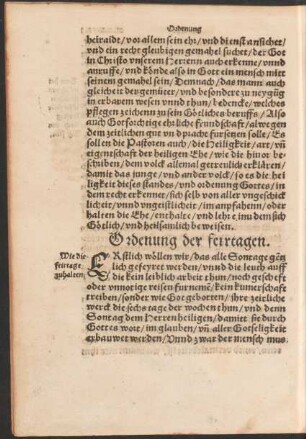 Ordenung
heiraldt/vor allem sein ehr/vnd dienst ansichet/
vnd ein recht gleubigen gemahel suchet/der Got
in Christo vnserem Herrenn auch erkenne/vnnd
anruffe/vnd könde also in Gott ein mensch mitt
seinem gemahel sein/Demnach/das mann auch
gleicheit der gemüter/vnd besondere zu neygũg
in erbarem wesen vnnd thun/bedencke/welches
pflegen zeichenn zusein Götliches beruffs/Also
auch Gotforchtige ehrliche freundschaft/al wegen
dem zeitlichen gut vnd pracht fur setzen solle/Es
sollen die Pastoren auch/die Heiligkeit/art/vñ
eigenschafft der heiligen Ehe/wie die hieuor be
schriben/dem volck allemal getreulich erklären/
damit das junge/vnd ander volck/so es die hei
ligkeit dieses standes/vnd ordenung Gottes/in
dem recht erkennet/sich selb von aller vngeschick
licheit/vnnd vngeistlicheit/im anpfahenn/oder
halten die Ehe/enthalte/vnd lehre inn dem sich
Götlich/vnd heilsamlich beweisen.
Ordenung der feirtagen.
Wie die
feirtage
zuhalten.
ERstlich wöllen wir/das alle Sontage gätz
lich gefeyret werden/vnnd die leuth auff
die kein leiblich arbeit thun/noch gescheft
oder vnnotige reisen furnemẽ/kein kumerschaft
treiben/sonder wie Got gebotten/ihre zeitliche
werck die sechs tage der wochen thun/vnd denn
Sontag dem Herrenn heiligen/damitt sie durch
Gottes wort/im glauben/vñ aller Gotseligkeit
erbauwet werden/Vnnd zwar der mensch mus